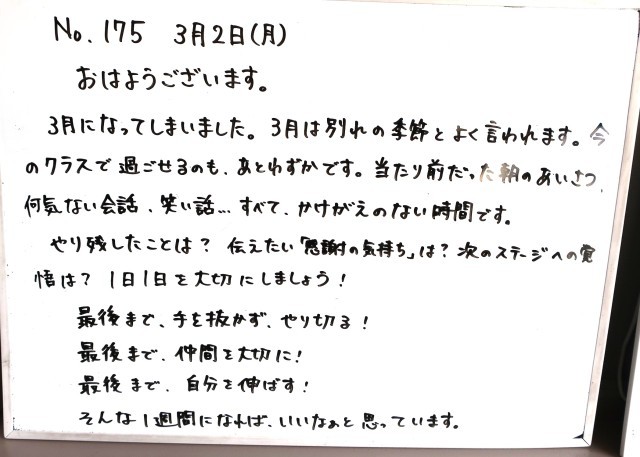 No. 175 3月2日(月)
おはようございます。
3月になってしまいました。3月は別れの季節とよく言われます。今
のクラスで過ごせるのも、あとわずかです。当たり前だった朝のあいさつ、
何気ない会話、笑い話... すべて、かけがえのない時間です。
やり残したことは? 伝えたい「感謝の気持ち」は? 次のステージへの覚
悟は? 1日1日を大切にしましょう!
最後まで、手を抜かず、やり切る!
最後まで、仲間を大切に!
最後まで、自分を伸ばす!
そんな1週間になれば、いいなぁと思っています。